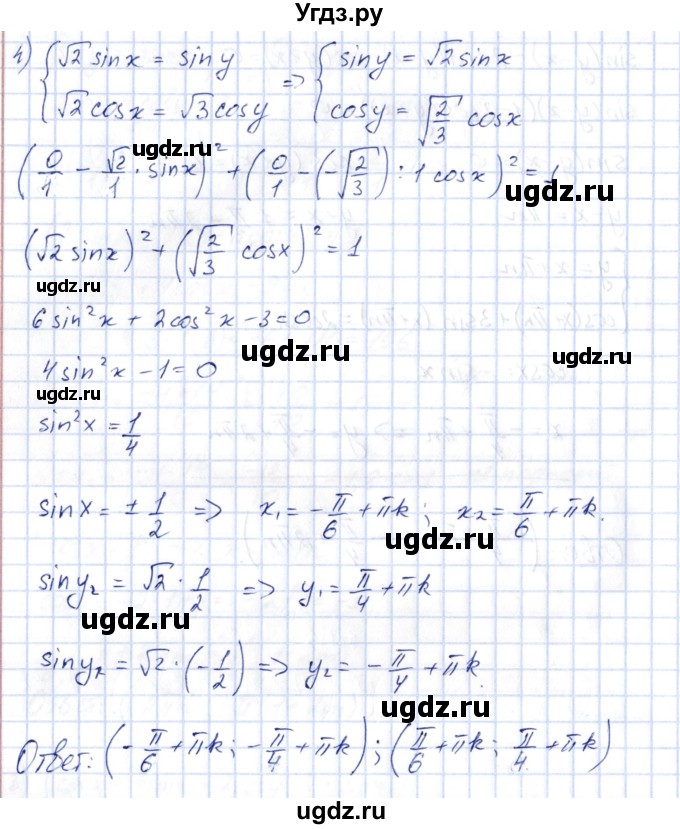 Угдз.ру
4) { √2 sinx = siny => { siny = √2 sinx
{ √2 cosx = √3 cosy { cosy = √(2/3) cosx
ugdz.ru
(0/1 - √2/1 · sinx)² + (0/1 - (-√(2/3)) : 1 cosx)² = 1
ugdz.ru
(√2 sinx)² + (√(2/3) cosx)² = 1
ugdz.ru
ugdz.ru
6 sin²x + 2cos²x - 3 = 0
ugdz.ru
4 sin²x - 1 = 0
ugdz.ru
sin²x = 1/4
sinx = ± 1/2 => x₁ = -π/6 + πk; x₂ = π/6 + πk.
ugdz.ru
siny₂ = √2 · 1/2 => y₁ = π/4 + πk
ugdz.ru
siny₂ = √2 · (-1/2) => y₂ = -π/4 + πk.
ugdz.ru
Ответ: (-π/6 + πk; -π/4 + πk); (π/6 + πk; π/4 + πk)
ugdz.ru
ugdz.ru